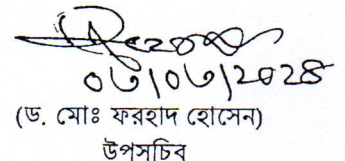 ০৩/০৩/২০২৪
(ড. মোঃ ফরহাদ হোসেন)
উপসচিব